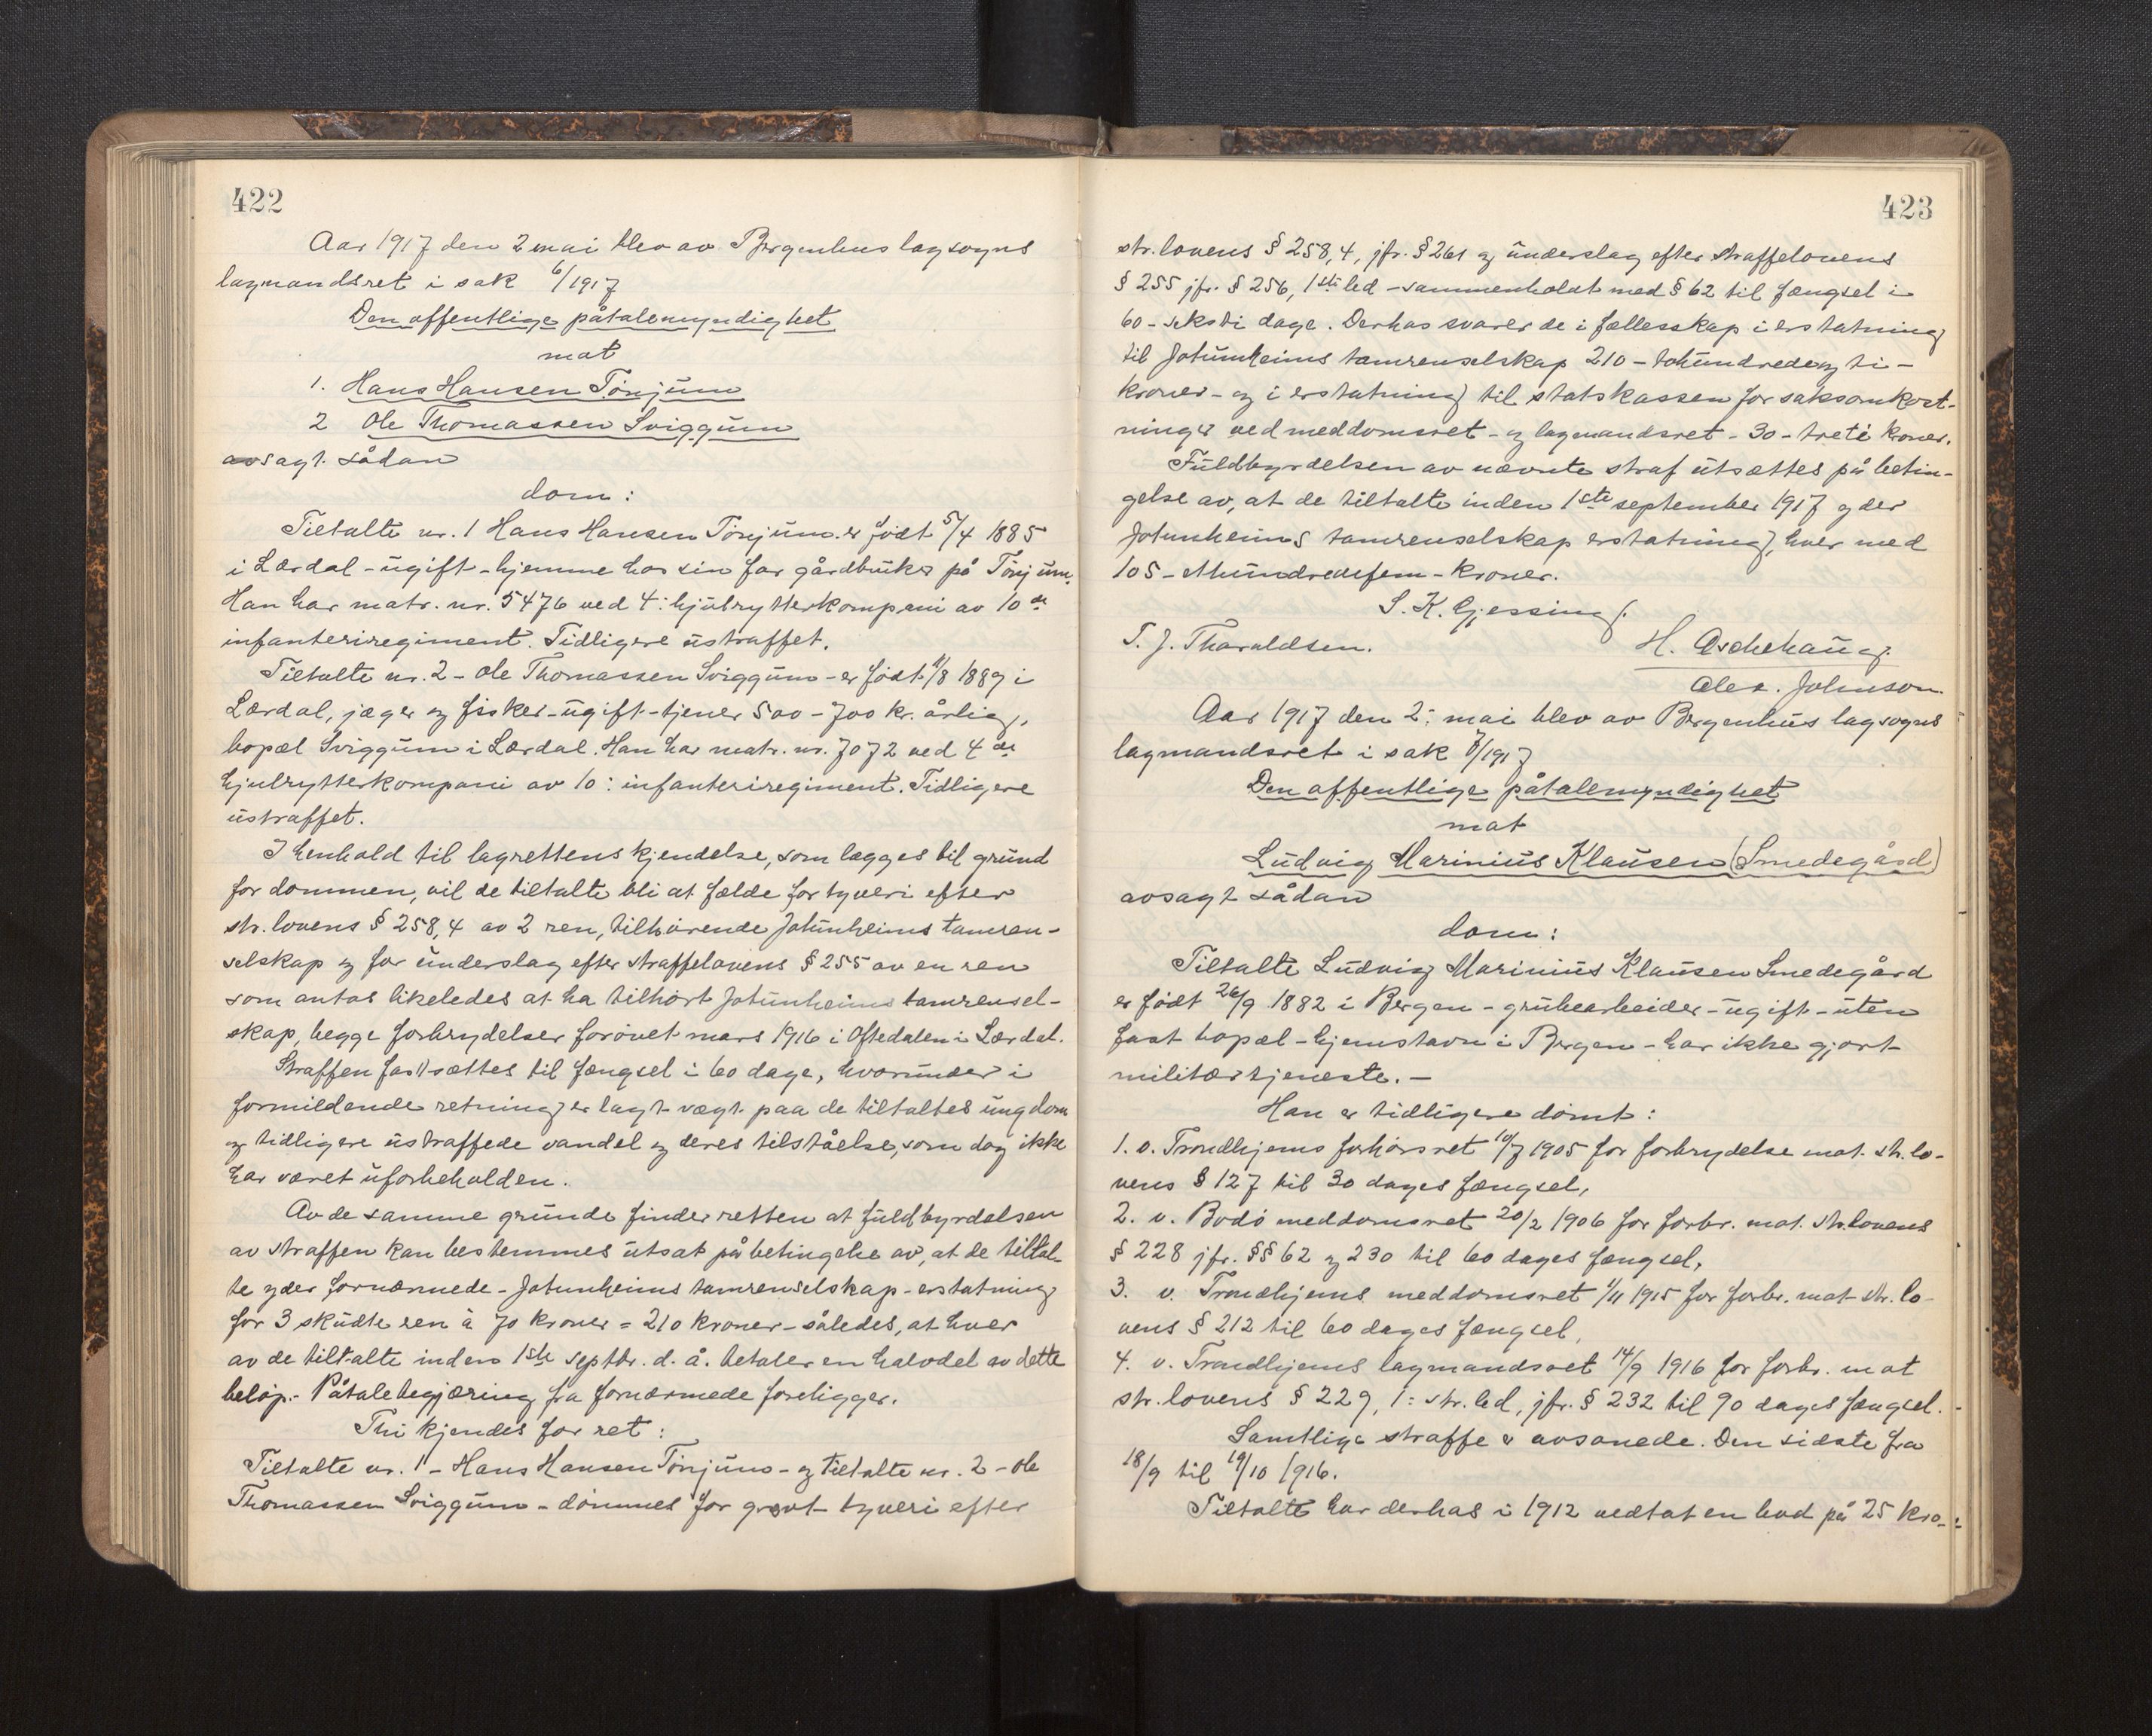 422
Aar 1917 den 2 mai blev av Bergenhus lagsogns
lagmandsret i sak 6/1917
Den offentlige påtalemyndighet
mot
1. Hans Hansen Tönjum
2 Ole Thomassen Sviggum
avsagt sådan
dom:
Tiltalte nr. 1 Hans Hansen Tönjum er födt 5/4 1885
i Lærdal - ugift - hjemme hos sin far gårdbruker på Tönjum.
Han har matr. nr. 5476 ved 4: hjulrytterkompani av 10de
infanteriregiment. Tidligere ustraffet.
Tiltalte nr. 2 - Ole Thomassen Sviggum - er födt 1/8 1889 i
Lærdal, jæger og fisker - ugift - tjener 500 - 700 kr. årlig,
bopæl Sviggum i Lærdal. Han har matr. nr. 7072 ved 4de
hjulrytterkompani av 10: infanteriregiment. Tidligere
ustraffet.
I henhold til lagrettens kjendelse, som lægges til grund
for dommen, vil de tiltalte bli at fælde for tyveri efter
str. lovens § 258,4 av 2 ren, tilhörende Jotunheims tamren-
selskap og for underslag efter straffelovens § 255 av en ren
som antas likeledes at ha tilhört Jotunheims tamrensel-
skap, begge forbrydelser forövet mars 1916 i Oftedalen i Lærdal.
Straffen fastsættes til fængsel i 60 dage, hvorunder i
formildende retning er lagt vægt paa de tiltaltes ungdom
og tidligere ustraffede vandel og deres tilståelse, som dog ikke
har været uforbeholden.
Av de samme grunde finder retten at fuldbyrdelsen
av straffen kan bestemmes utsat på betingelse av, at de tiltal-
te yder fornærmede - Jotunheims tamrenselskap - erstatning
for 3 skudte ren à 70 kroner = 210 kroner - således, at hver
av de tiltalte inden 1ste septbr. d. å. betaler en halvdel av dette
belöp. - Påtalebegjæring fra fornærmede foreligger.
Thi kjendes for ret:
Tiltalte nr. 1 - Hans Hansen Tönjum - og tiltalte nr. 2 - Ole
Thomassen Sviggum - dömmes for grovt tyveri efter
423
str. lovens § 258,4, jfr. § 261 og underslag efter straffelovens
§ 255 jfr. § 256, 1ste led - sammenholdt med § 62 til fængsel i
60 - seksti dage. Derhos svarer de i fællesskap i erstatning
til Jotunheims tamrenselskap 210 - tohundredeog ti -
kroner - og i erstatning til statskassen for saksomkost-
ninger ved meddomsret - og lagmandsret - 30 - treti kroner.
Fuldbyrdelsen av nævnte straf utsættes på betin-
gelse av, at de tiltalte inden 1ste september 1917 yder
Jotunheims tamrenselskap erstatning, hver med
105 - ethundredefem - kroner.
S. K. Gjessing.
T. J. Tharaldsen.
H. Aschehaug.
Alex. Johnson.
Aar 1917 den 2: mai blev av Bergenhus lagsogns
lagmandsret i sak 8/1917
Den offentlige påtalemyndighet
mot
Ludvig Marinius Klausen (Smedegård)
avsagt sådan
dom:
Tiltalte Ludvig Marinius Klausen Smedegård
er födt 26/9 1882 i Bergen - grubearbeider - ugift - uten
fast bopæl - hjemstavn i Bergen - har ikke gjort
militærtjeneste. -
Han er tidligere dömt:
1. v. Trondhjems forhörsret 10/7 1905 for forbrydelse mot str. lo-
vens § 127 til 30 dages fængsel,
2. v. Bodö meddomsret 20/2 1906 for forbr. mot str. lovens
§ 228 jfr. §§ 62 og 230 til 60 dages fængsel,
3. v. Trondhjems meddomsret 1/11 1915 for forbr. mot str. lo-
vens § 212 til 60 dages fængsel,
4. v. Trondhjems lagmandsret 14/9 1916 for forbr. mot
str. lovens § 229, 1: str. led, jfr. § 232 til 90 dages fængsel.
Samtlige straffe er avsonede. Den sidste fra
18/9 til 19/10 1916.
Tiltalte har derhos i 1912 vedtat en bod på 25 kro-